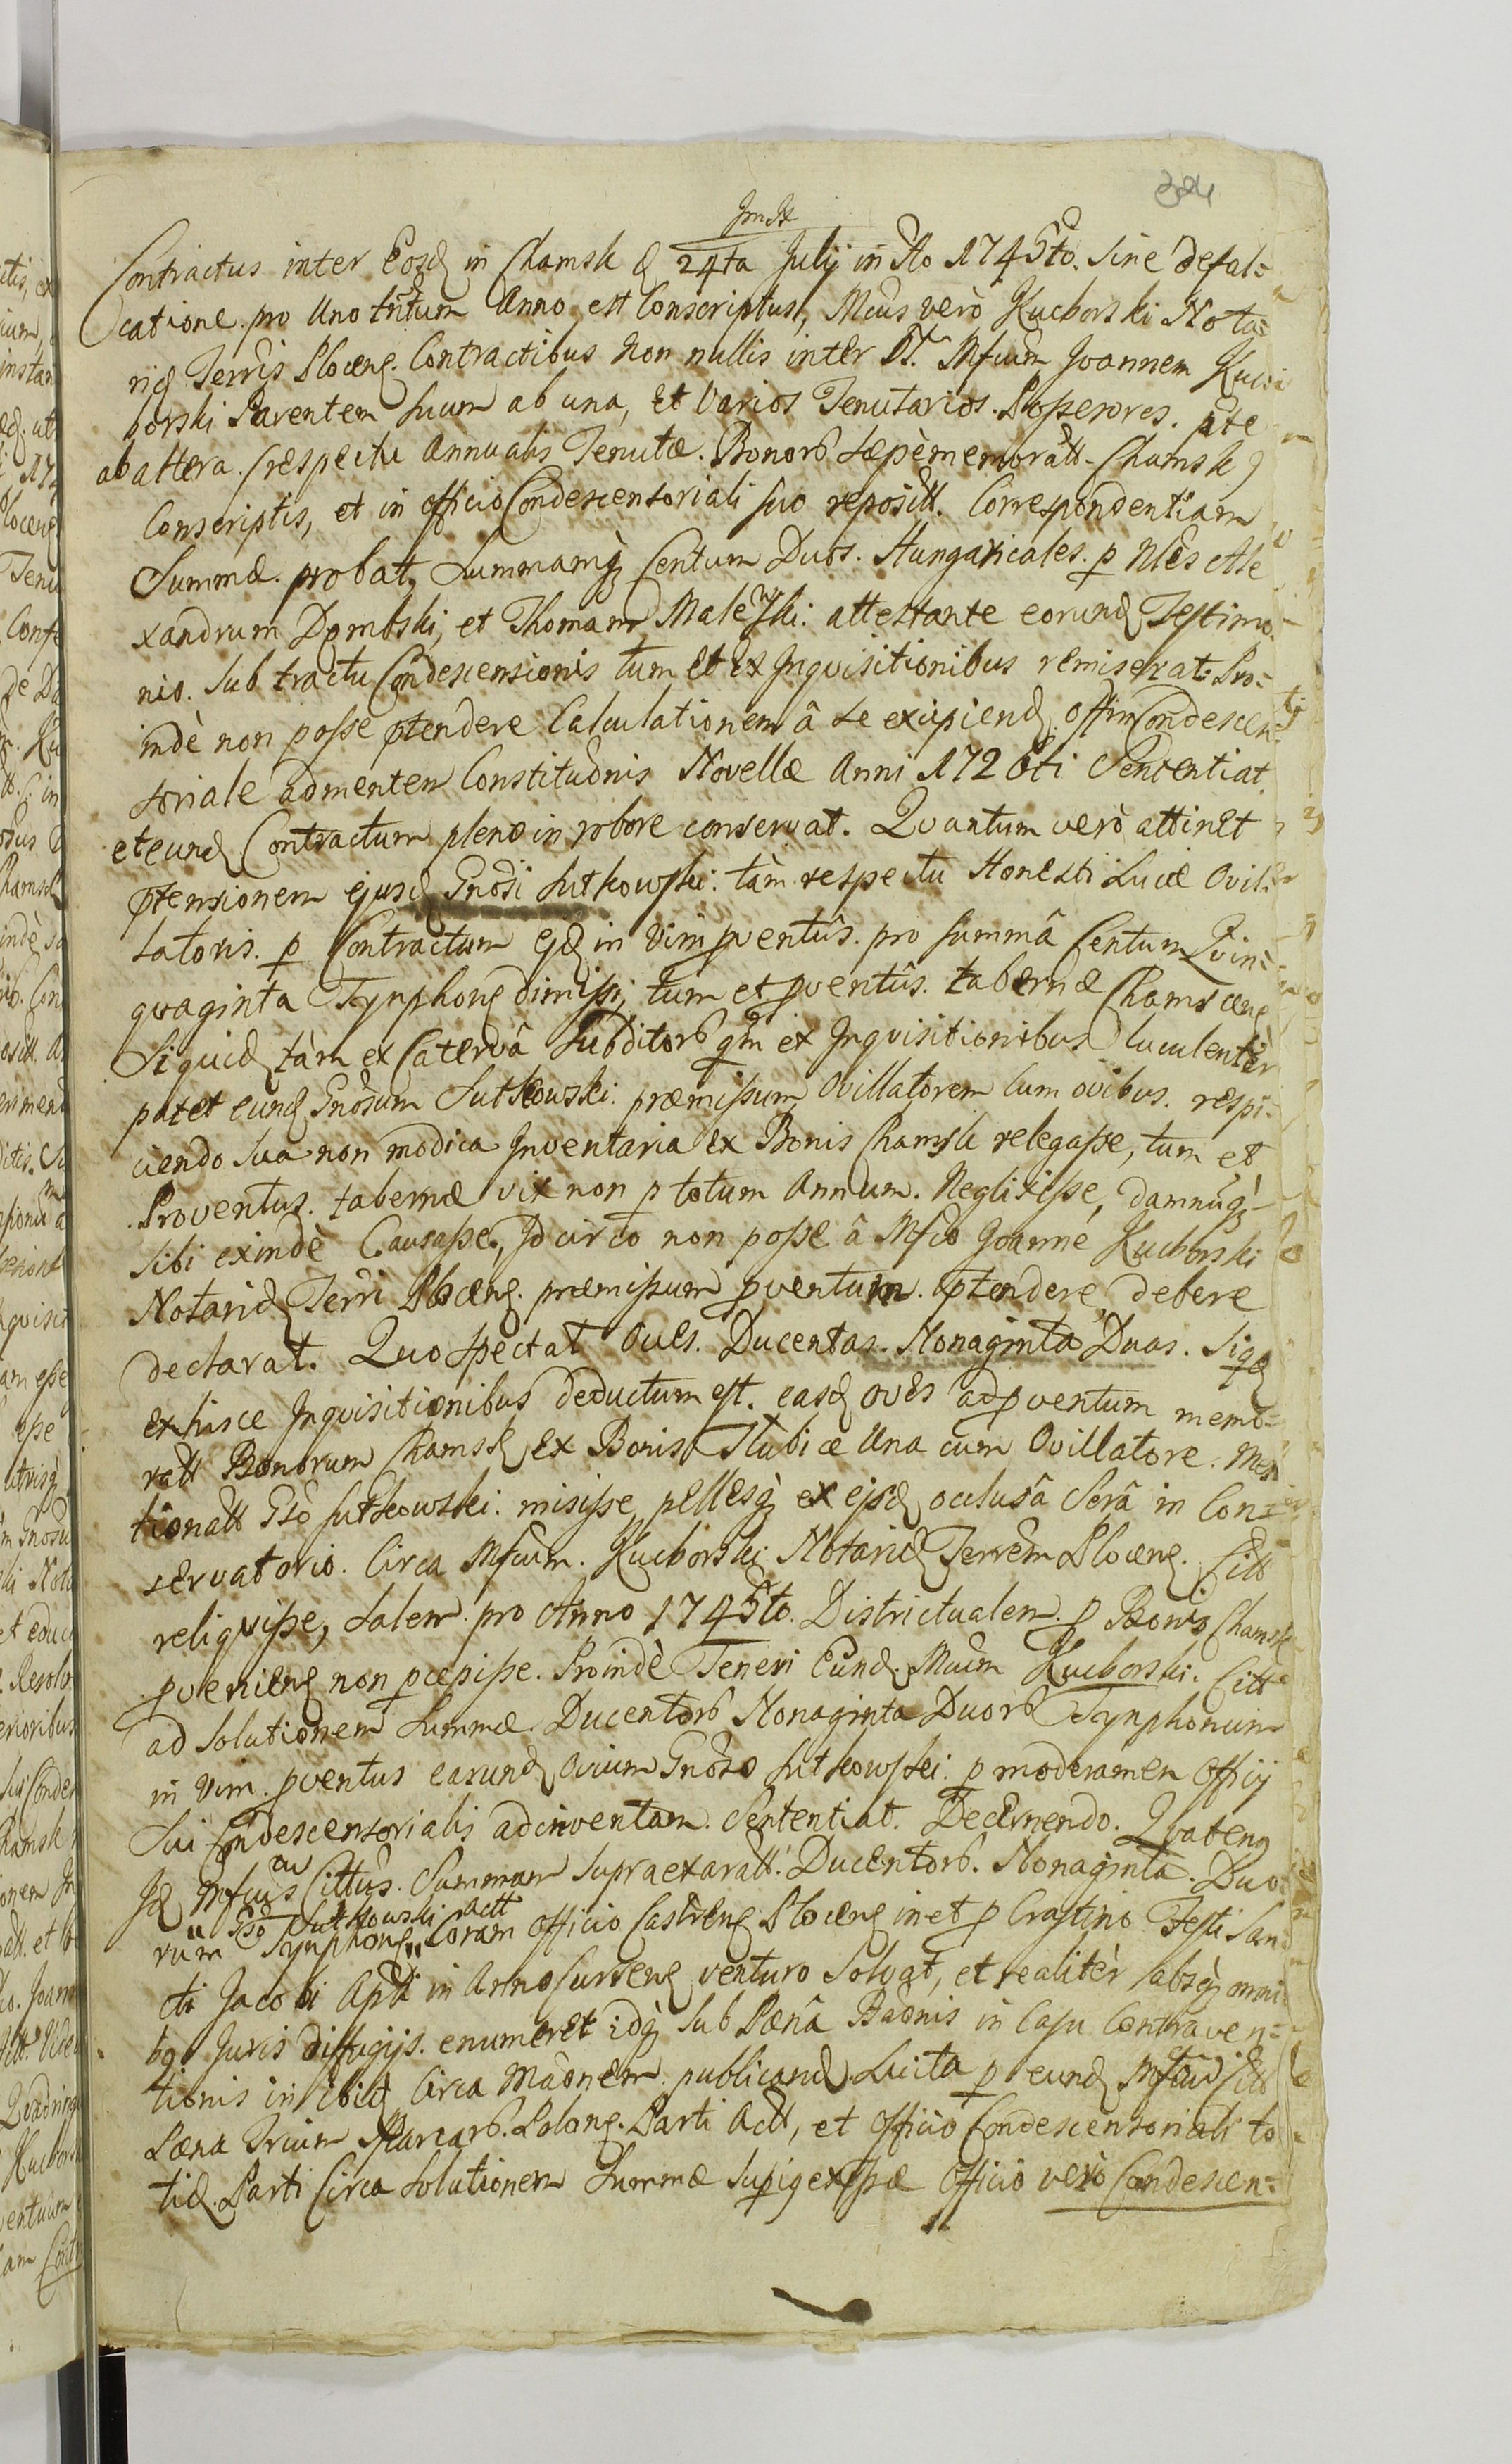 324
Jmst
Contractus inter Eosd in Chamsk d 24ta Julij in Ao 1745to. sine defal=
catione. pro Uno tntum Anno est Conscriptus, Mcus verò Kuchorski Nota=
riq Terris Plocens. Contractibus non nullis inter M. Mfcum Joannem Kuch
horski Parentem suum ab una, et Varios Tenutarios. Possesores. pte
ab altera. (respectu Annualis Tenutæ. Bonorb sæpèmemoratt. Chamsk)
Conscriptis, et in officio Condescensoriali suo reposítt. Correspondentiam
Summæ. probat, Summamq Centum Duos. Hungaricales. p Nles Ale
xandrum Dombski, et Thomam Malewski: attestante eorund Testimo.
nio. sub tractu Condescensionis tum et ex Inqvisitionibus remiserat: Pro=
indè non posse ptendere Calculationem â se excipiend Offm Condescen=
soriale admentem Constitudnis Novellæ Anni 1726ti Sententiat.
et eund Contractum pleno in robore conservat. Qvantum verò attinet
ptensionem ejusd Gnosi Sutkowski. tàm respectu Honesti Lucæ Ovil=
latoris. p Contractum ejd in Vim pventûs. pro summâ Centum Qvin=
qvaginta Tynphons dimissi, tum et pventûs. tabernæ Chamscens
Siquid tàm ex Catervâ Subditorb qm ex Inqvisitionibus luculentèr
patet eund Gnosum Sutkowski. præmissum Ovillatorem cum ovibus. respi=
ciendo sua non modica Inventaria ex Bonis Chamsk relegasse, tum et
Proventus. tabernæ vix non p totum Annum. Neglixisse, damnuq
sibi exindè Causasse, Idcirco non posse â Mfco Joanne Kuchorski
Notariq Terri Plocens. præmissum pventum. ptendere debere
declarat. Quo spectat Oves. Ducentas. Nonaginta Duas. Siqd
ex hisce Inqvisitionibus deductum est. easd oves ad pventum memo=
ratt Bonorum Chamsk ex Bonis Słubicæ Una cum Ovillatore. Men
tionatt Gso Sutkowski. misisse, pellesq ex ejsd occlusâ Serâ in Con=
servatorio. Circa Mfcum. Kuchorski Notariq Terrem Plocens. Citt
reliqvisse, Salem. pro Anno 1745to. Districtualem. p Bonis Chamsk
pveniens non pcepisse. Proindè Teneri Eund. Mcum Kuchorski. Citt
ad Solutionem Summæ. Ducentorb Nonaginta Duorb Tynphonum
in Vim. pventus earund ovium Gnoso Sutkowski. p moderamen Officij
Sui Condescensorialis adinventam. Sententiat. Decernendo. Qvatens
Jd Mfcus Cittus. Summam supraexaratt. Ducentorb. Nonaginta. Duo
rum Tynphons Gso Sutkowski Actt Coram Officio Castrens Plocens in et p Crastino Festi San
cti Jacobi Apli in Anno Currens venturo Solvat, et realitèr absq omni
bq Juris diffugijs. enumeret idq sub Pænâ Banis in Casu Contraven=
tionis in ibid Circa Maonem. publicand Lucita p eund Mfcu Citt
Pæna Trium Marcarb. Polons. Parti Actt, et Officio Condescensoriali to
tid. Parti Circa Solutionem Summæ Officio verò Condescen=